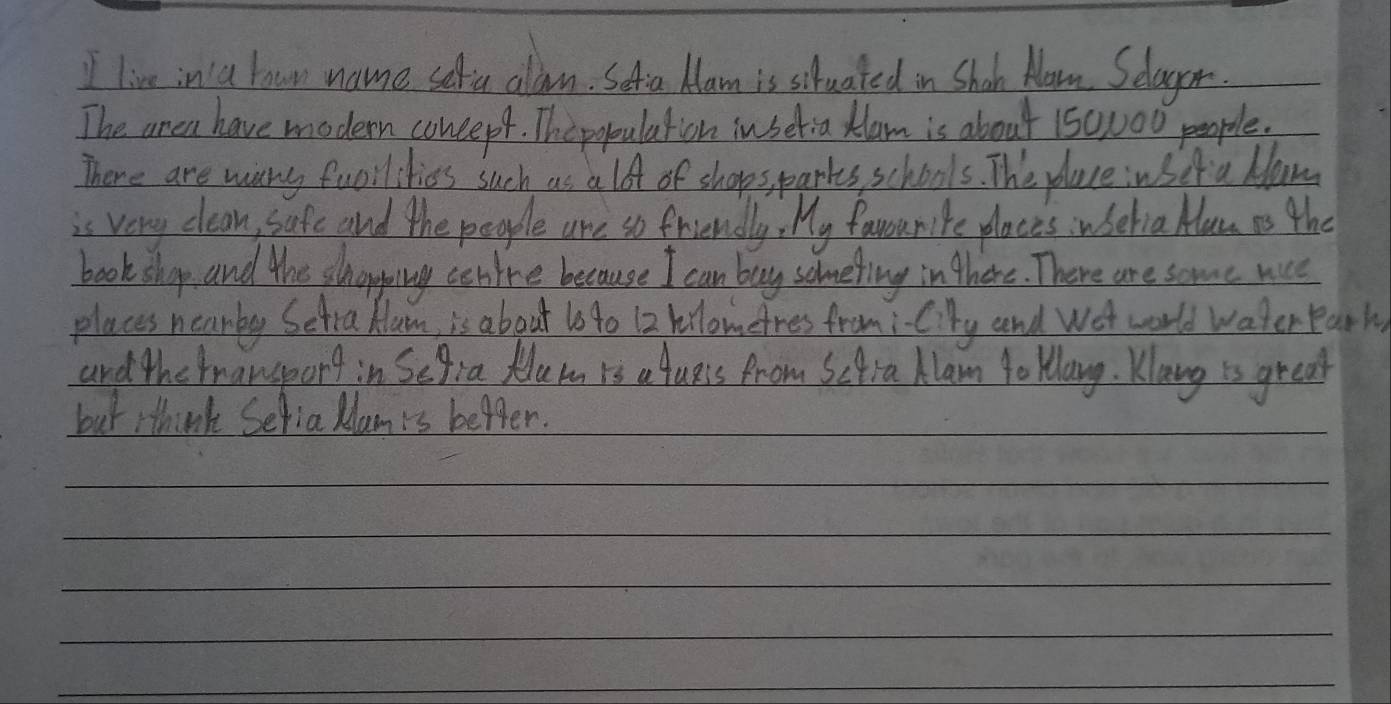 I live in a town name setia alam. Setia Alam is situated in Shah Alam, Selagor.
The area have modern concept. The population in setia Alam is about 150,000 people.
There are many fucilities such as a lot of shops, parks, schools. The place in Setia Alam
is very clean, safe and the people are so friendly. My favourite places in Setia Alam is the
book shop and the shopping centre because I can buy someting in there. There are some nice
places nearby Setia Alam, is about to 12 kilometres from i-City and Wet world Water Park,
and the transport in Setia Alam is a from Setia Alam to Klang. Klang is great
but i think Setia Alam is better.